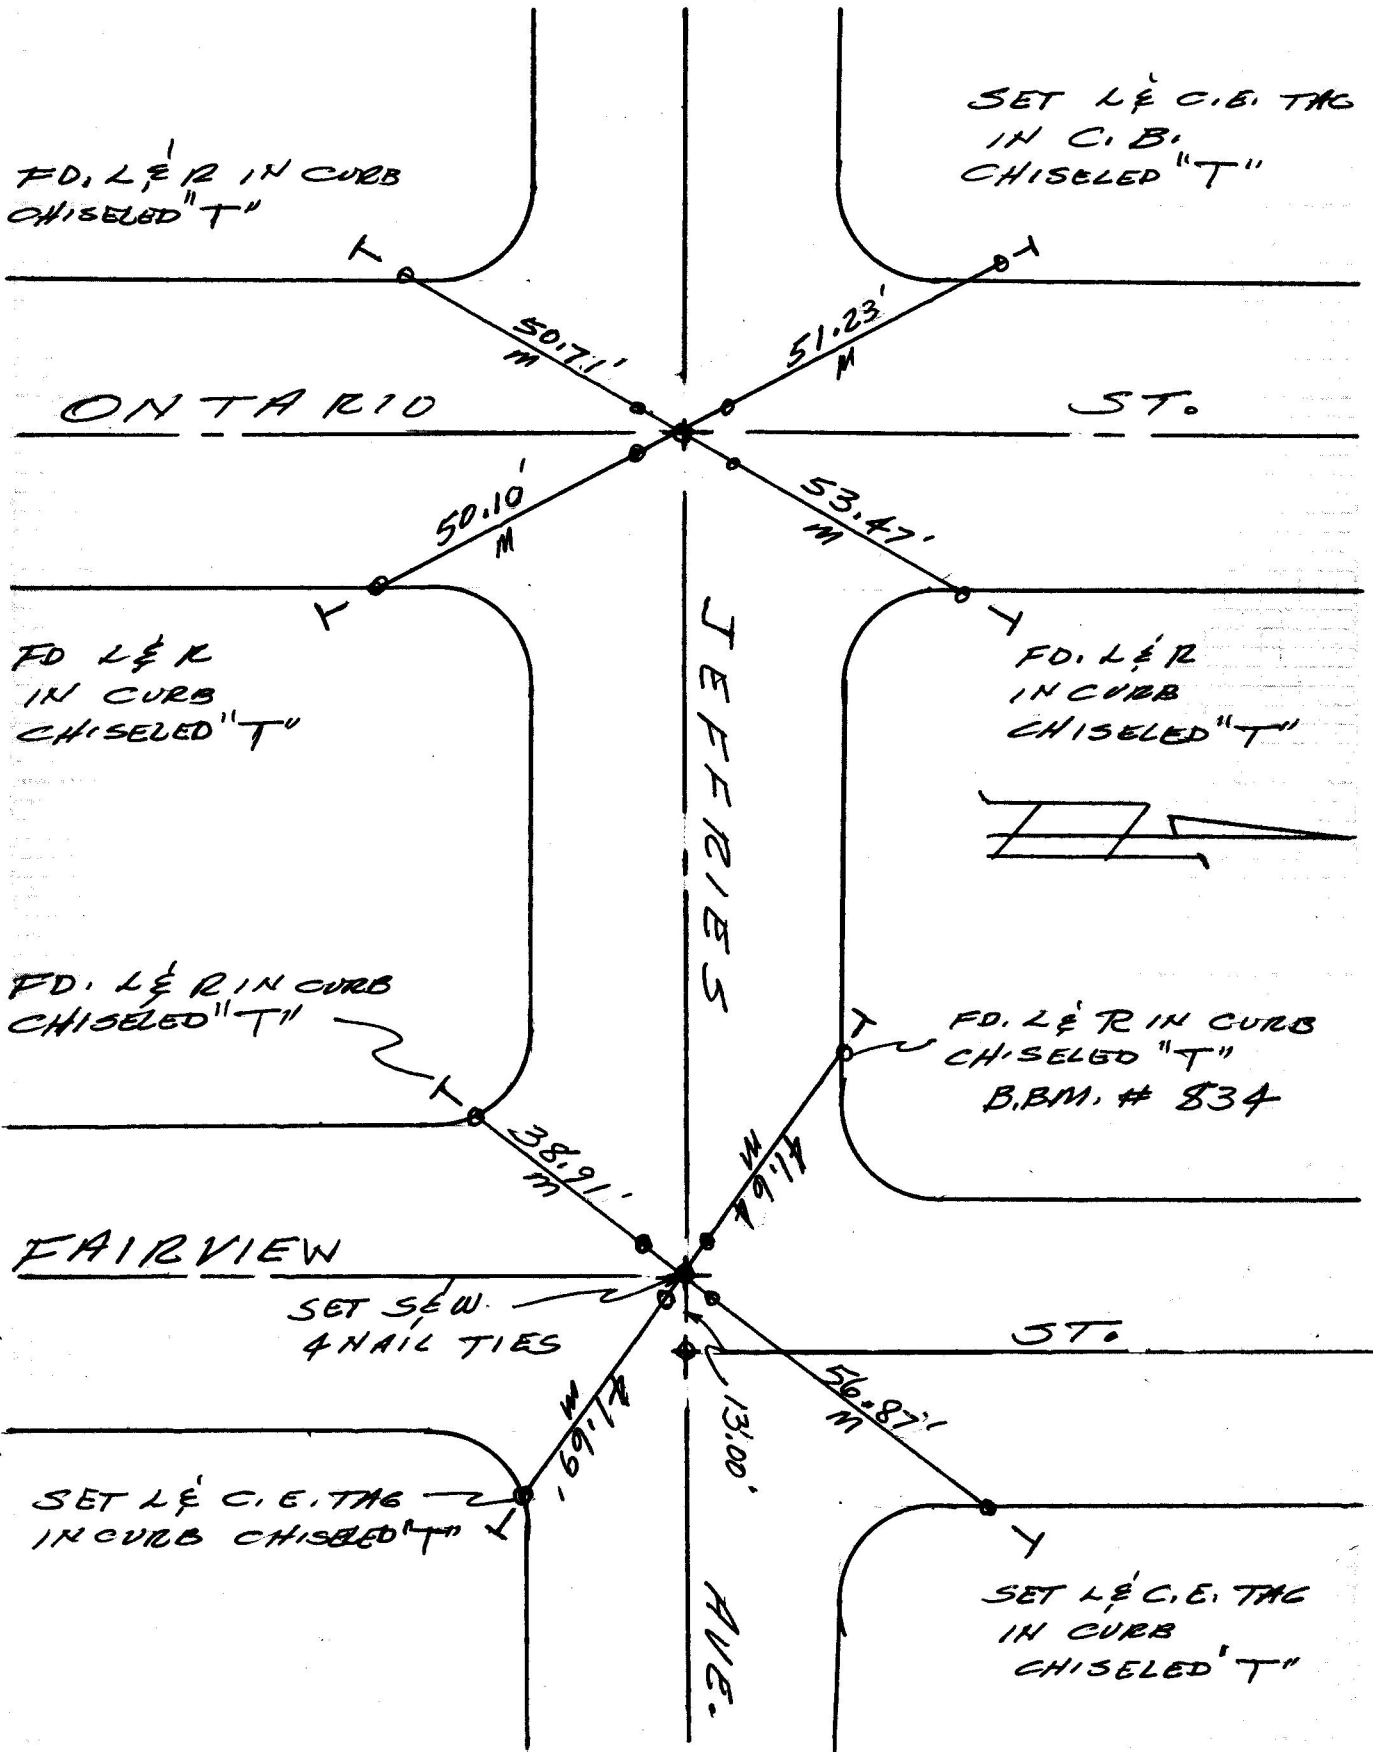 SET L & C.E. TAG
IN C.B.
CHISELED "T"
FD. L & R IN CURB
CHISELED "T"
T
T
50.71'
M
51.23'
M
ONTARIO ST.
50.10'
M
53.47'
M
T
T
FD L & R
IN CURB
CHISELED "T"
FD. L & R
IN CURB
CHISELED "T"
JEFFRIES AVE.
FD. L & R IN CURB
CHISELED "T"
T
T
FD. L & R IN CURB
CHISELED "T"
B.BM. # 834
38.91'
M
41.64
M
FAIRVIEW ST.
SET S&W.
4 NAIL TIES
13.00'
41.69'
M
56.87'
M
SET L & C.E. TAG
IN CURB CHISELED "T"
T
T
SET L & C.E. TAG
IN CURB
CHISELED "T"